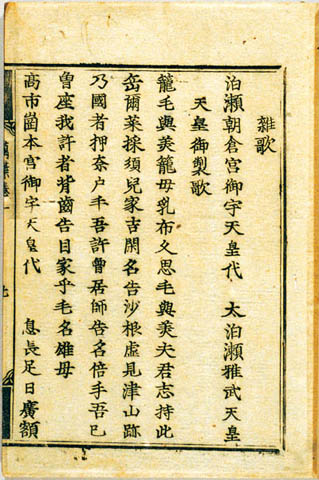 雜歌
泊瀬朝倉宮御宇天皇代 太泊瀬雅武天皇
天皇御製歌
籠毛與美籠母乳布久思毛與美夫君志持此
岳爾菜採須兒家吉閑名告沙根虚見津山跡
乃國者押奈户手吾許曽居師告名倍手吾已
曽座我許者背齒告目家乎毛名雄母
高市崗本宮御宇天皇代 息長足日廣額